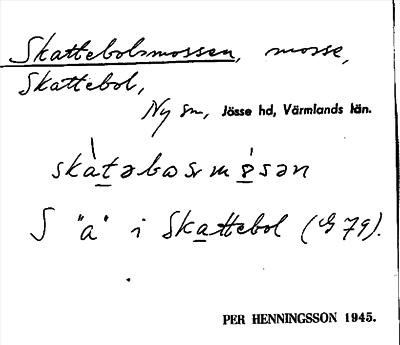 Skattebolsmossen, mosse,
Skattebol,
Ny sn, Jösse hd, Värmlands län.
skàtəbωsrmòsən
S "a" i Skattebol (G 79).
PER HENNINGSSON 1945.